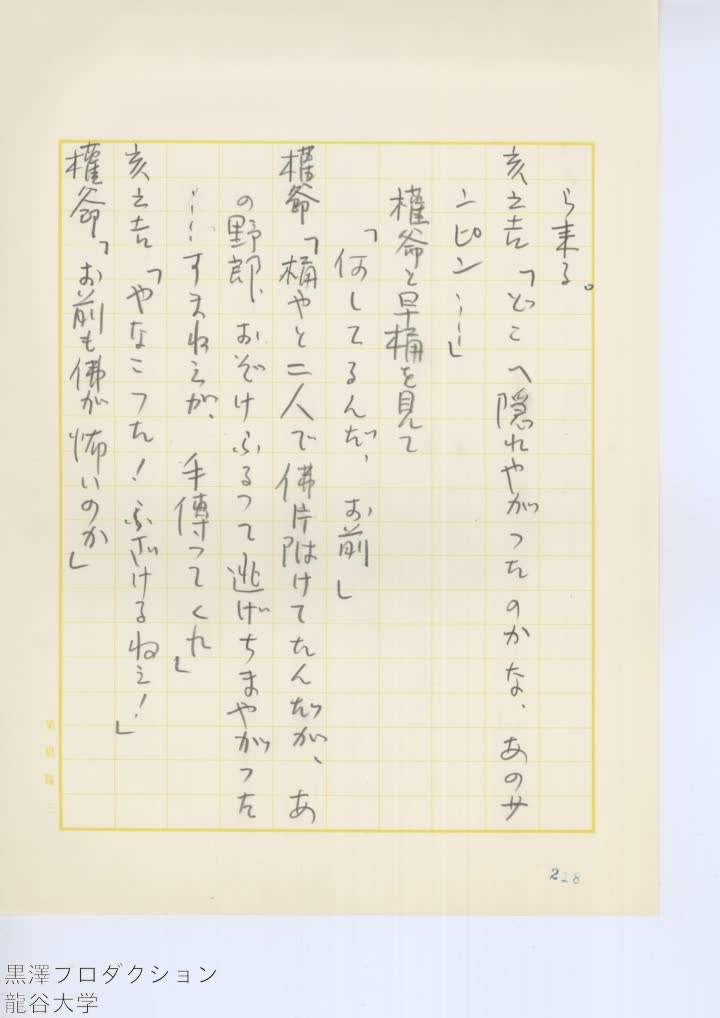 ら来る。
亥之吉「どこへ隠れやがつたのかな、あのサ
ンピン……」
權爺と早桶を見て
「何してるんだ、お前」
權爺「桶やと二人で佛片附けてたんだが、あ
の野郎、おぞけふるつて逃げちまやがつた
……すまねえが、手傳つてくれ」
亥之吉「やなこつた！ふざけるねえ！」
權爺「お前も佛が怖いのか」
228
黒澤プロダクション
龍谷大学